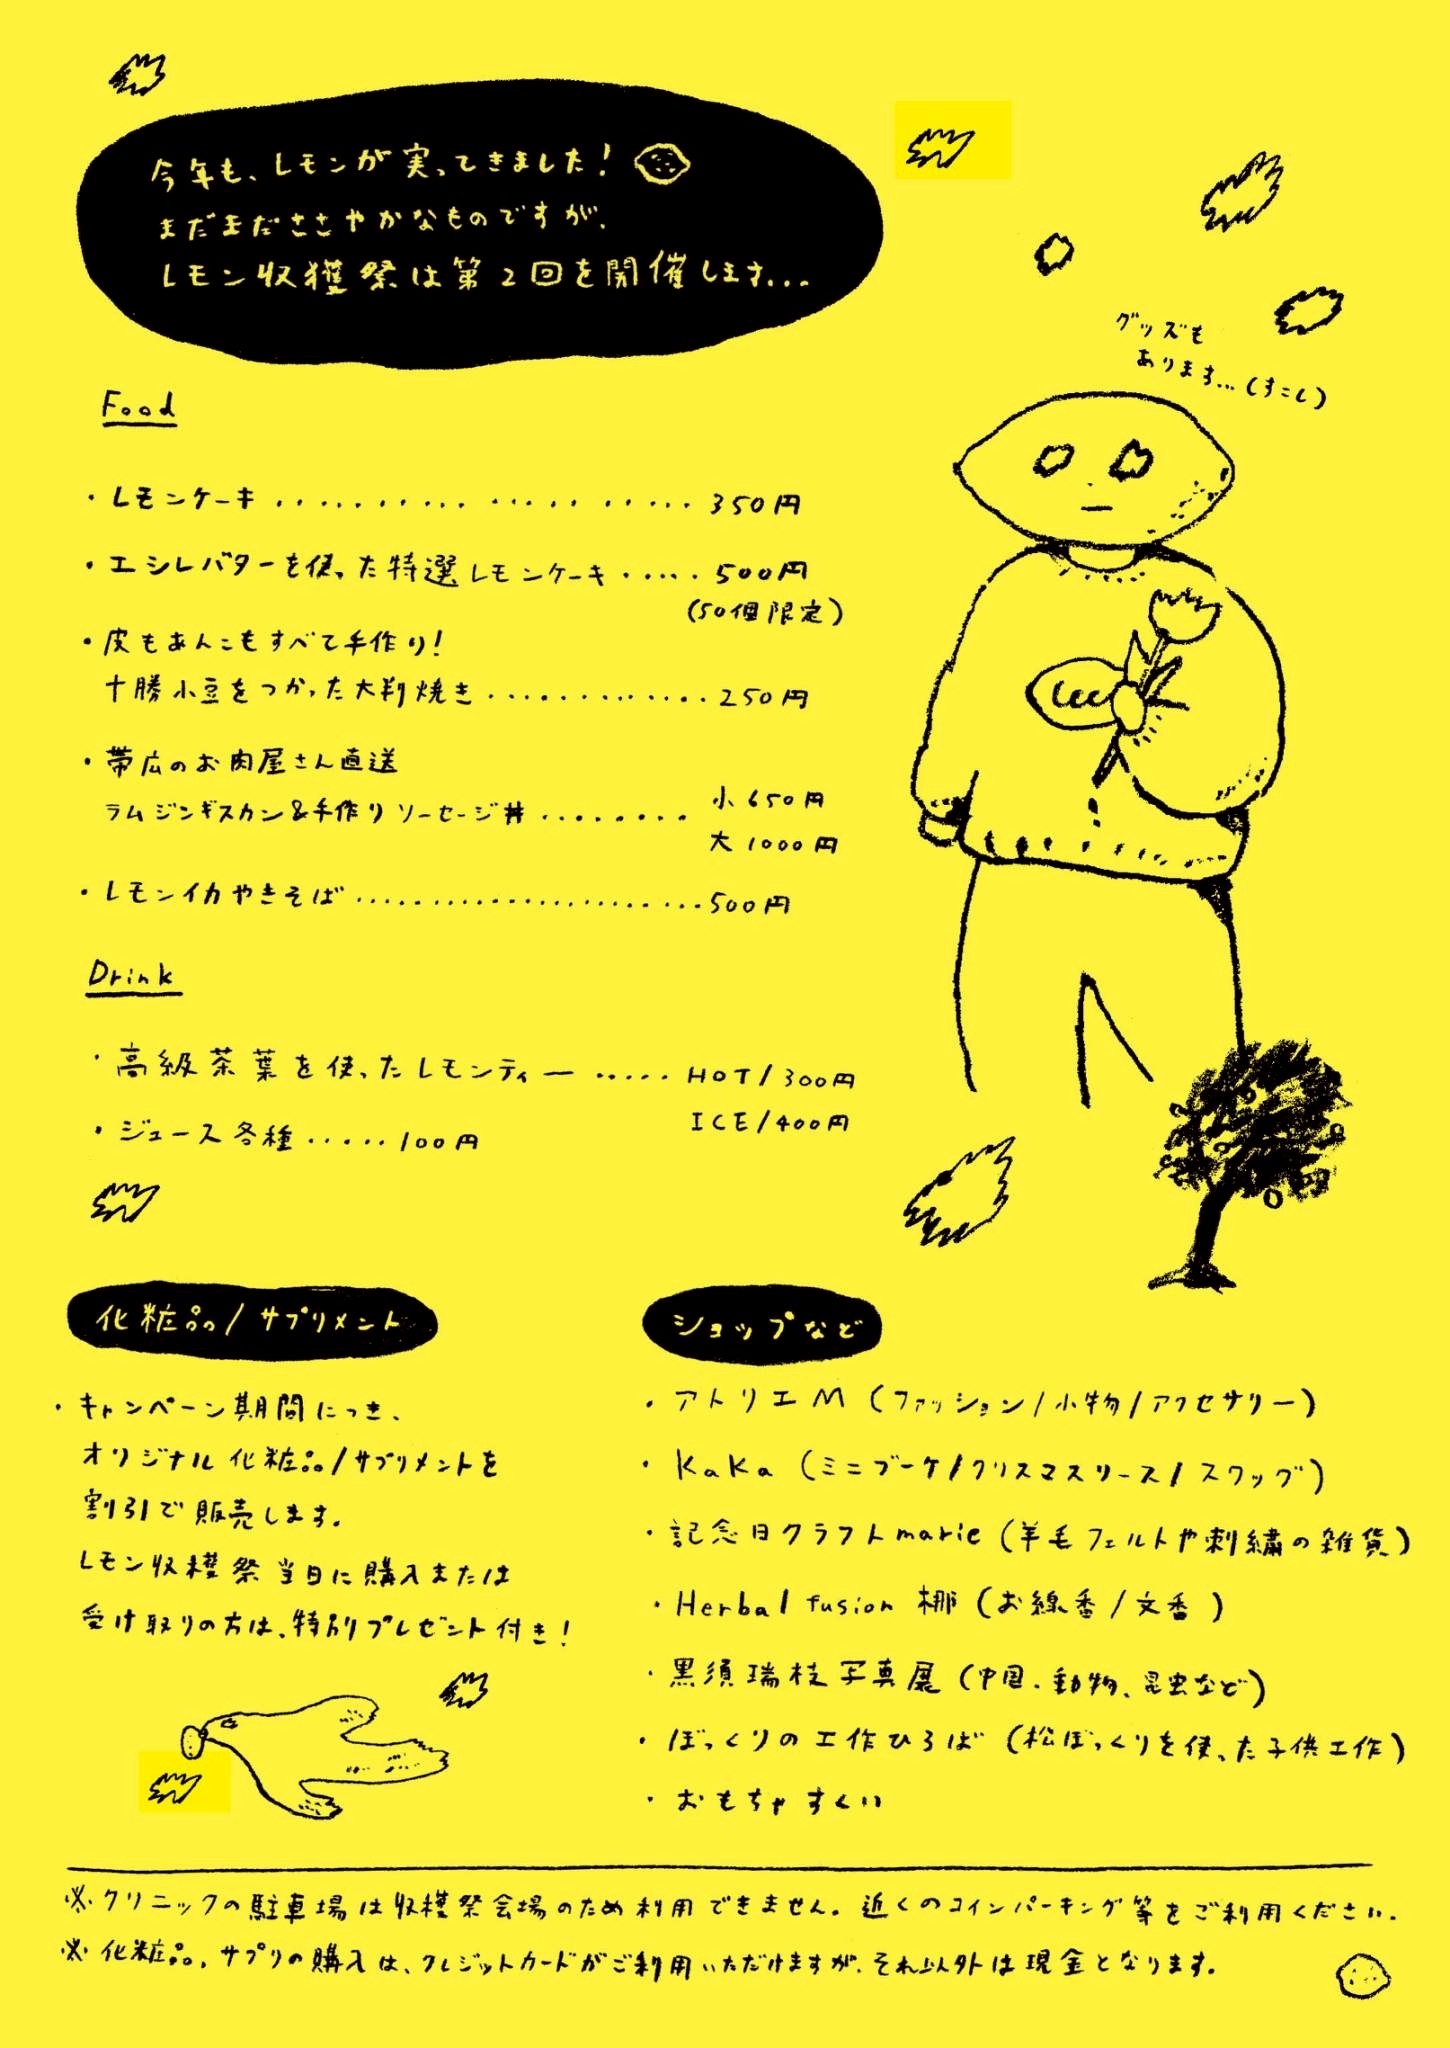 今年も、レモンが実ってきました！
まだまだささやかなものですが、
レモン収穫祭は第2回を開催します...
グッズも
あります...(すこし)
Food
・レモンケーキ ........................ 350円
・エシレバターを使った特選レモンケーキ ..... 500円
(50個限定)
・皮もあんこもすべて手作り！
十勝小豆をつかった大判焼き ............. 250円
・帯広のお肉屋さん直送
ラムジンギスカン&手作りソーセージ丼 ......... 小 650円
大 1000円
・レモンイカやきそば ........................ 500円
Drink
・高級茶葉を使ったレモンティー ..... HOT/300円
ICE/400円
・ジュース各種 ..... 100円
化粧品/サプリメント
・キャンペーン期間につき、
オリジナル化粧品/サプリメントを
割引で販売します。
レモン収穫祭当日に購入または
受け取りの方は、特別プレゼント付き！
ショップなど
・アトリエM (ファッション/小物/アクセサリー)
・KaKa (ミニブーケ/クリスマスリース/スワッグ)
・記念日クラフトmarie (羊毛フェルトや刺繍の雑貨)
・Herbal fusion 梛 (お線香/文香)
・黒須瑞枝写真展 (中国、動物、昆虫など)
・ぼっくりの工作ひろば (松ぼっくりを使った子供工作)
・おもちゃすくい
※クリニックの駐車場は収穫祭会場のため利用できません。近くのコインパーキング等をご利用ください。
※化粧品、サプリの購入は、クレジットカードがご利用いただけますが、それ以外は現金となります。